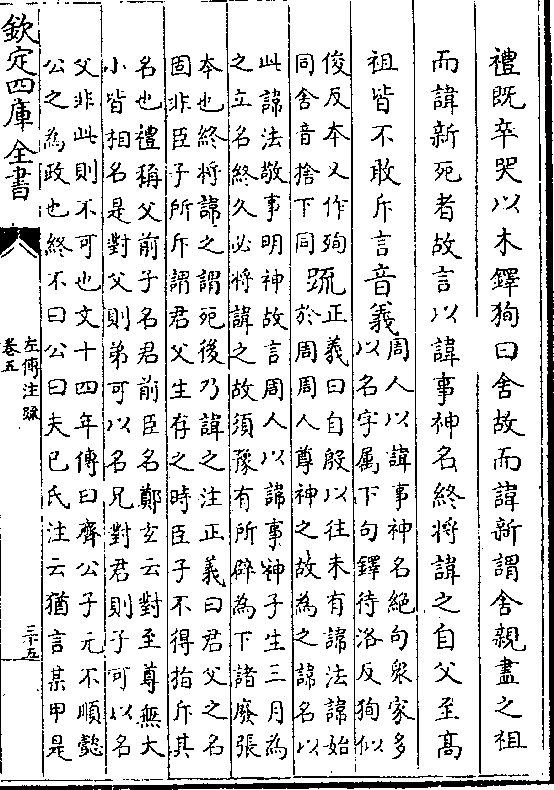 禮既卒哭以木鐸狥曰舍故而諱新謂舍親盡之祖
而諱新死者故言以諱事神名終將諱之自父至髙
祖皆不敢斥言音義周人以諱事神名絶句衆家多
以名字属下句鐸待洛反狥似
俊反本又作殉
同舍音捨下同疏正義曰自殷以往未有諱法諱始
於周周人尊神之故為之諱名以
此諱法敬事明神故言周人以諱事神子生三月為
之立名終久必將諱之故須豫有所辟為下諸廢張
本也終將諱之謂死後乃諱之注正義曰君父之名
固非臣子所斥謂君父生存之時臣子不得指斥其
名也禮稱父前子名君前臣名鄭玄云對至尊無大
小皆相名是對父則弟可以名兄對君則子可以名
父非此則不可也文十四年傳曰齊公子元不順懿
公之為政也終不曰公曰夫已氏注云猶言某甲是
欽定四庫全書
左傳注疏
卷五
三十五